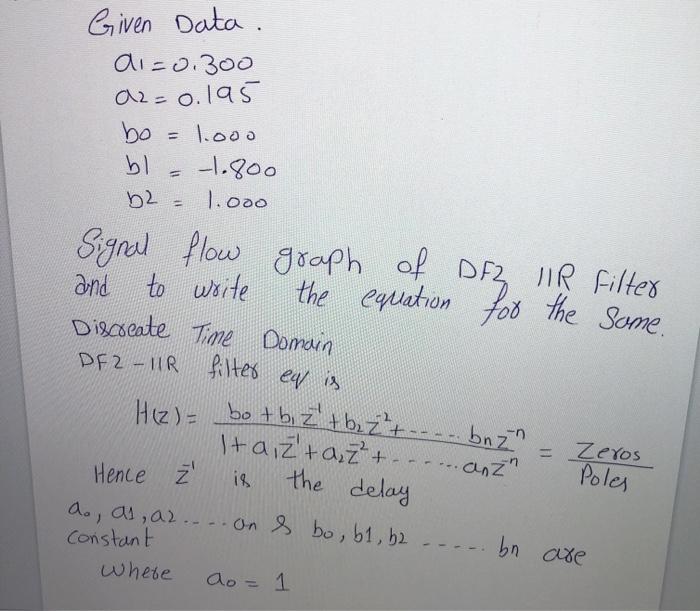 Given Data.
a1 = 0.300
a2 = 0.195
b0 = 1.000
b1 = -1.800
b2 = 1.000
Signal flow graph of DF2 IIR Filter
and to write the equation for the Same.
Discreate Time Domain
DF2-IIR filter eq is
H(z) = b0 + b1z⁻¹ + b2z⁻² + ...... bnz⁻ⁿ / 1 + a1z⁻¹ + a2z⁻² + ...... anz⁻ⁿ = Zeros / Poles
Hence z⁻¹ is the delay
a0, a1, a2 .... an & b0, b1, b2 ..... bn are
constant
where a0 = 1